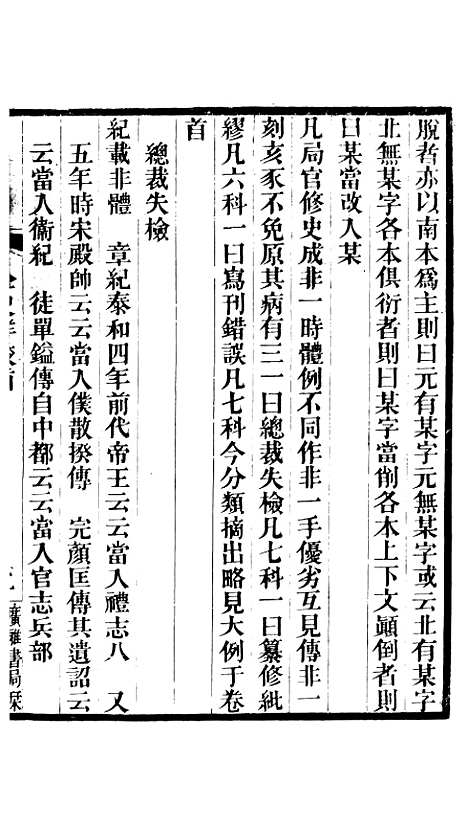 脫者亦以南本爲主則曰元有某字元無某字或云北有某字
北無某字各本俱衍者則曰某字當削各本上下文顚倒者則
曰某當改入某
凡局官修史成非一時體例不同作非一手優劣互見傳非一
刻亥豕不免原其病有三一曰總裁失檢凡七科一曰纂修紕
繆凡六科一曰寫刊錯誤凡七科今分類摘出略見大例于卷
首
總裁失檢
紀載非體　章紀泰和四年前代帝王云云當入禮志八　又
五年時宋殿帥云云當入僕散揆傳　完顏匡傳其遺詔云
云當入衞紀　徒單鎰傳自中都云云當入官志兵部
廣雅書局栞